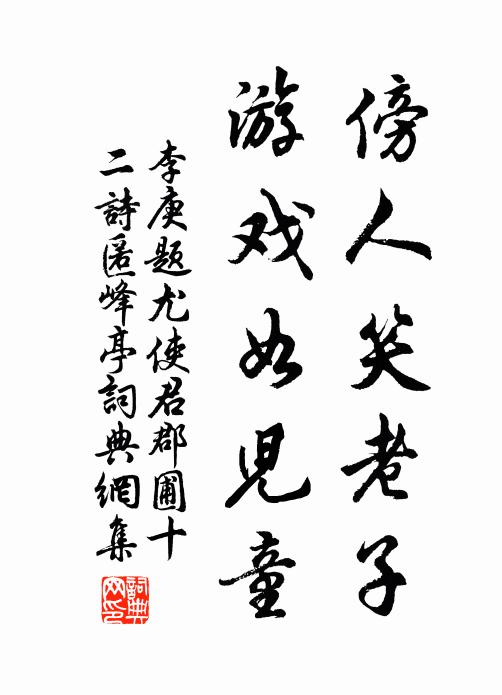 傍人笑老子
游戏如兒童
李庚題尤使君郡圃十
二詩匿峰亭詞典網集
詞典网印